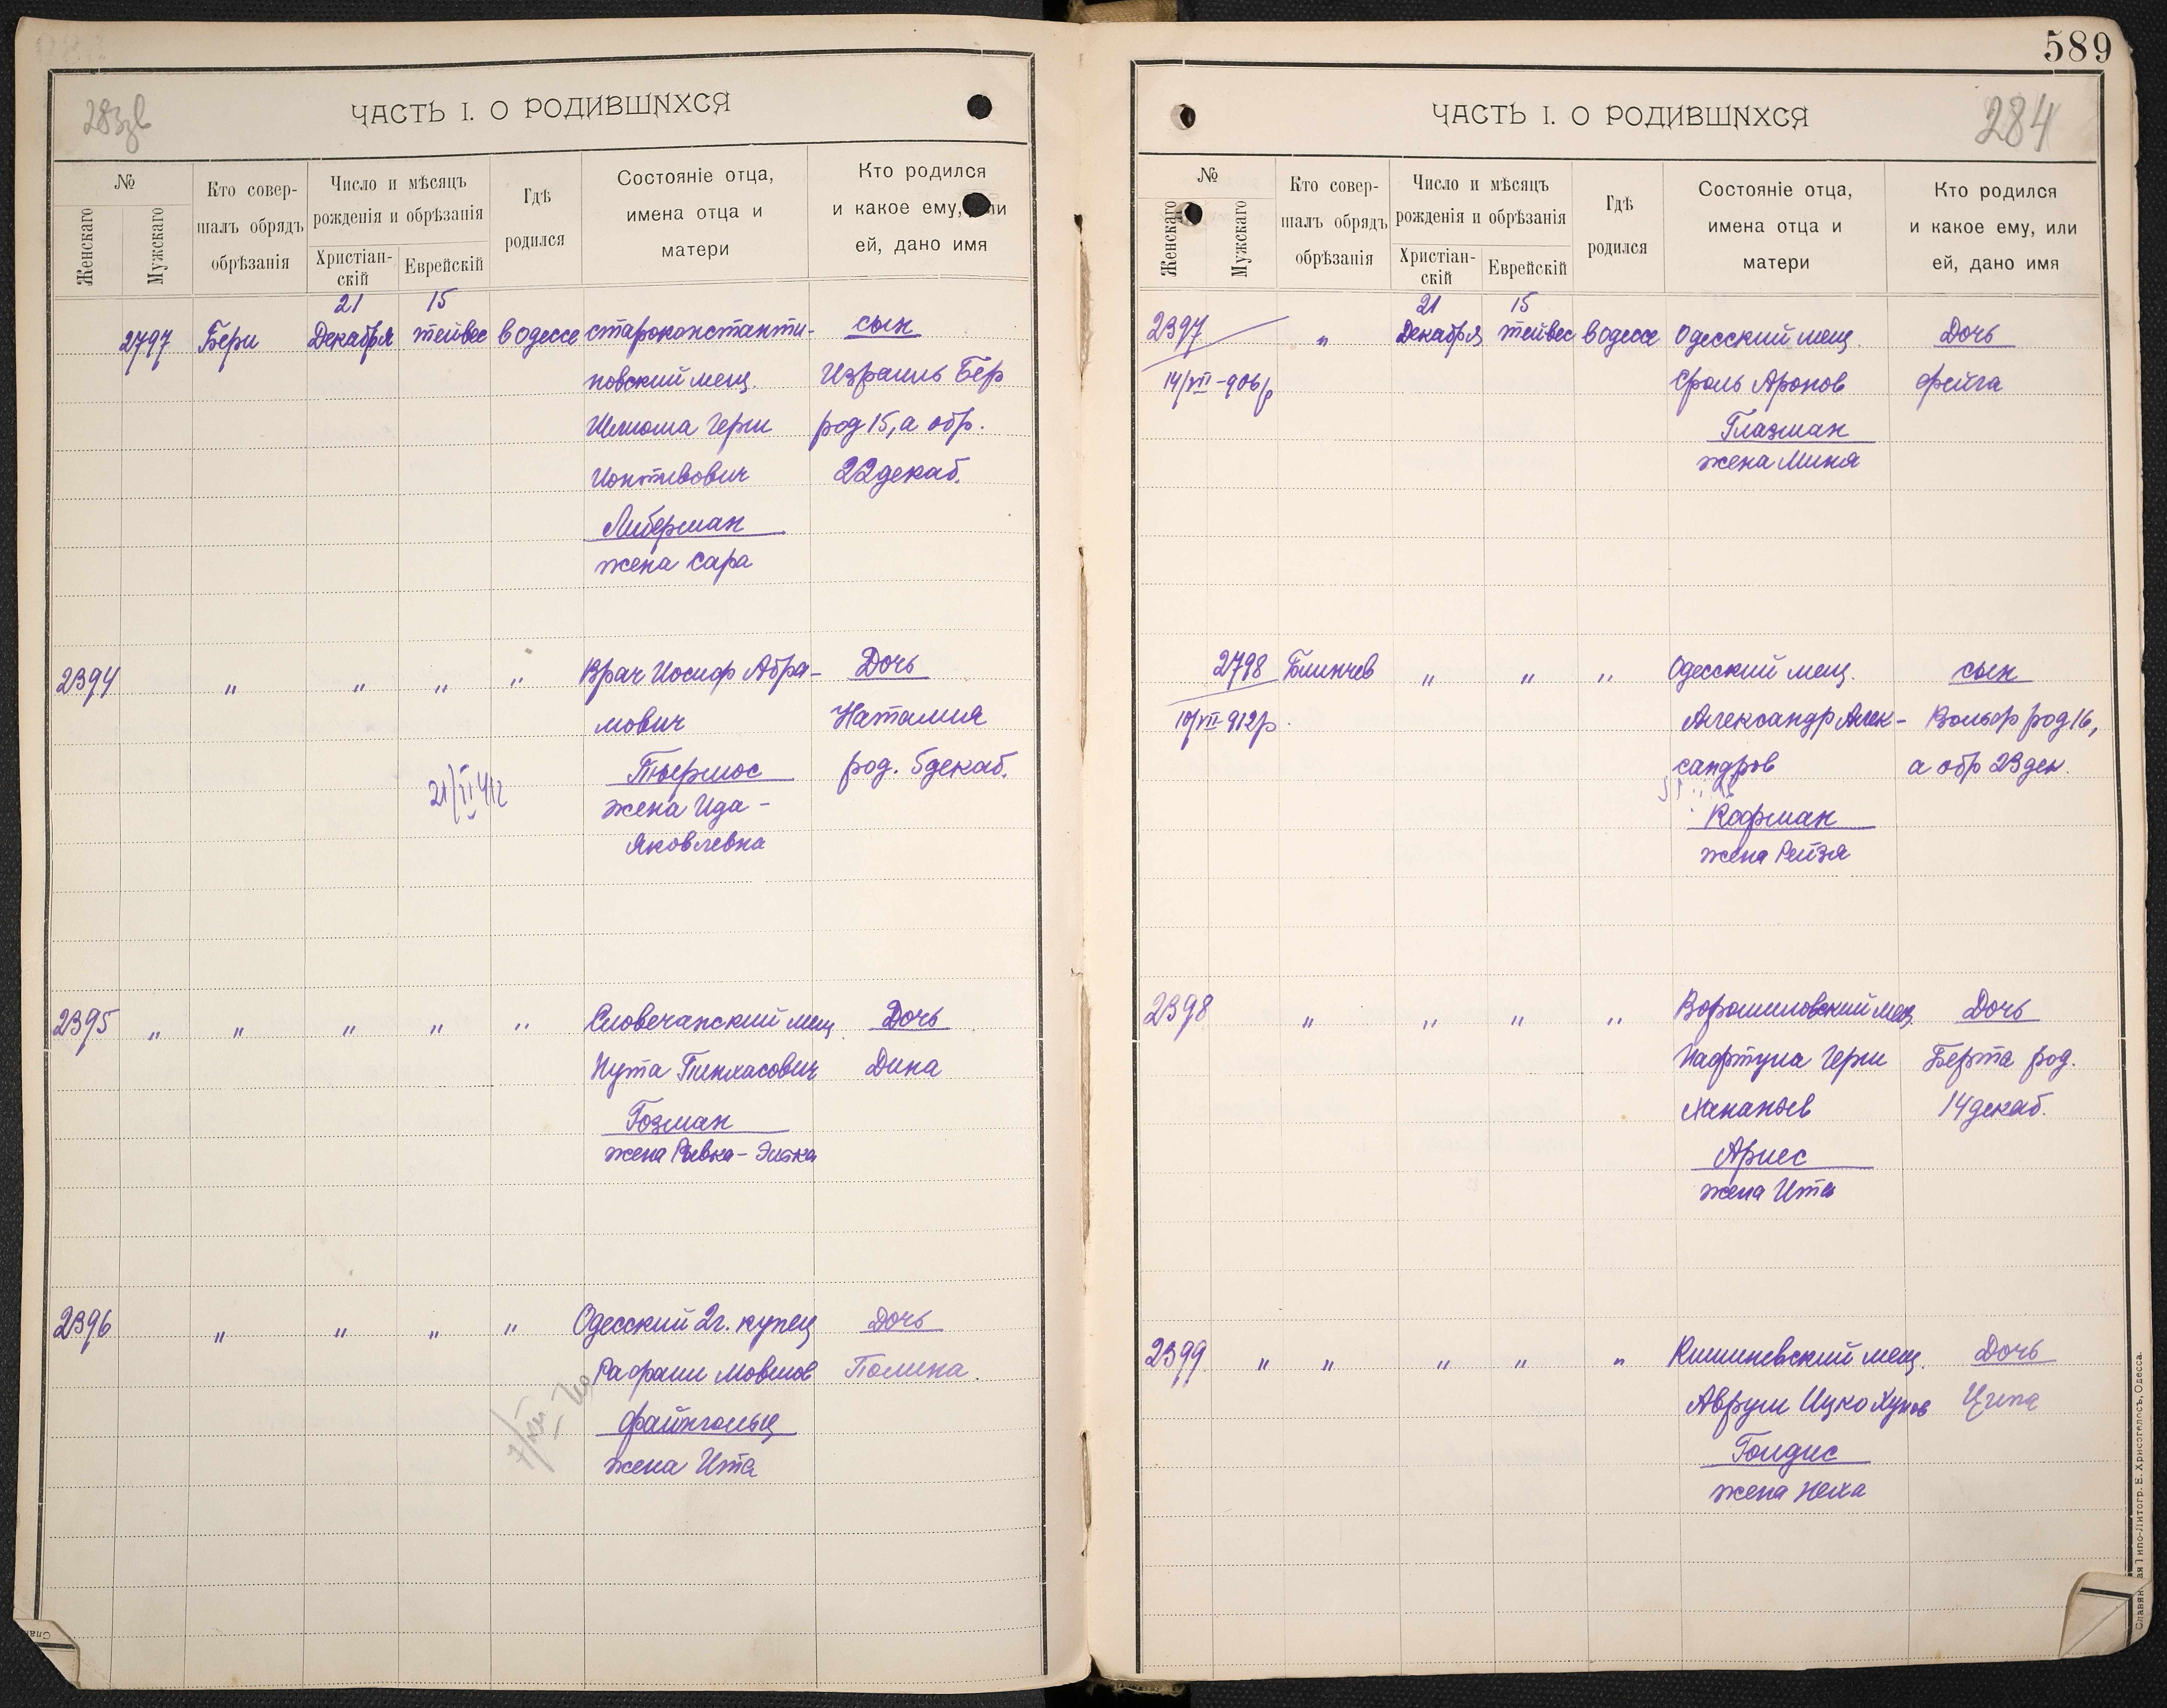 283 об
ЧАСТЬ I. О РОДИВШИХСЯ
№
Женскаго
Мужскаго
Кто совер-
шалъ обрядъ
обрѣзанія
Число и мѣсяцъ
рожденія и обрѣзанія
Христіан-
скій
Еврейскій
Гдѣ
родился
Состояніе отца,
имена отца и
матери
Кто родился
и какое ему, или
ей, дано имя
21 15
2797 Бери Декабря тейвес в Одессе староконстанти- сын
новский мещ. Израиль Бер
Шлиома Герш род 15, а обр.
Ионтивович 22 декаб.
Либерман
жена Сара
2394 " " " " Врач Иосиф Абра- Дочь
мович Наталия
Тыермос род. 5 декаб.
жена Ида-
Яковлевна
2395 " " " " " Словечанский мещ. Дочь
Нута Пинхасович Дина
Гозман
жена Ривка-Элька
2396 " " " " Одесский 2 г. купец Дочь
Рафаил Мовшов Полина.
Файнгольц
жена Ита
589
284
ЧАСТЬ I. О РОДИВШИХСЯ
№
Женскаго
Мужскаго
Кто совер-
шалъ обрядъ
обрѣзанія
Число и мѣсяцъ
рожденія и обрѣзанія
Христіан-
скій
Еврейскій
Гдѣ
родился
Состояніе отца,
имена отца и
матери
Кто родился
и какое ему, или
ей, дано имя
21 15
2397 " Декабря тейвес в Одессе Одесский мещ. Дочь
14/VII-906 р Сроль Аронов Фейга
Глазман
жена Миня
2798 Блинчев " " " Одесский мещ. сын
10/VII-912 р. Александр Алек- Вольф род 16,
сандров а обр 23 дек.
Кофман
жена Рейзя
2398 " " " " Ворошиловский мещ. Дочь
Нафтула Герш Берта род.
Хананов 14 декаб.
Ариес
жена Ита
2399 " " " " " Кишиневский мещ. Дочь
Аврум Ицко Хунов Ципа
Голдис
жена Неха
Типо-Литогр. Е. Хрисогелосъ, Одесса.